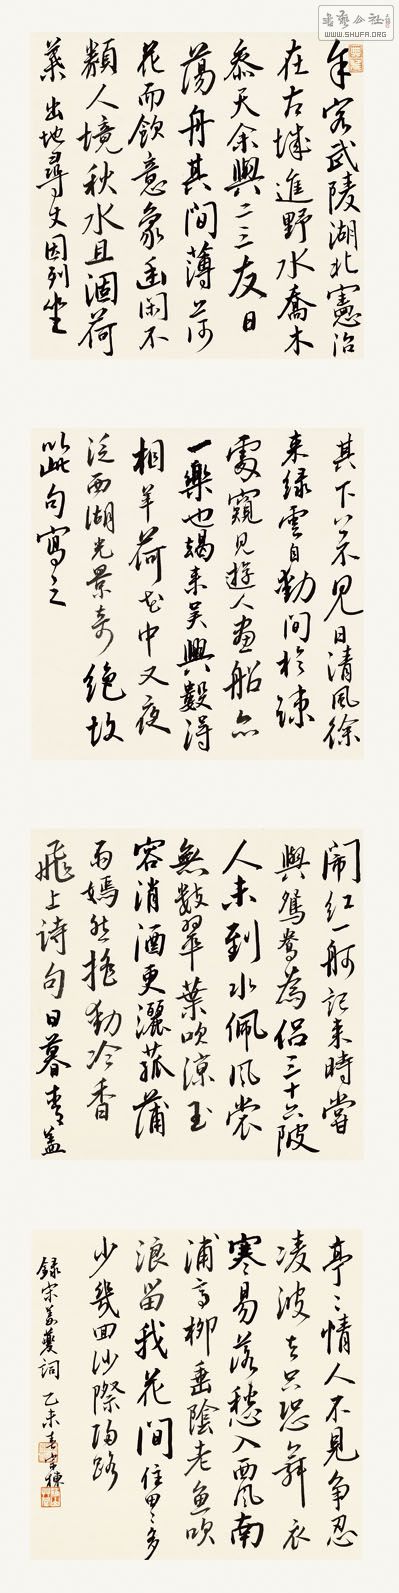 書藝公社
WWW.SHUFA.ORG
余客武陵湖北憲治
在古城進野水喬木
參天余與二三友日
蕩舟其間薄荷
花而飲意象幽閑不
類人境秋水且涸荷
葉出地尋丈因列坐
其下上不見日清風徐
來緑雲自動間於疎
處窺見遊人畫船亦
一樂也朅来吴興數得
相羊荷花中又夜
泛西湖光景奇絶故
以此句寫之
鬧紅一舸記来時嘗
與鴛鴦為侶三十六陂
人未到水佩風裳
無數翠葉吹涼玉
容消酒更灑菰蒲
雨嫣然摇動冷香
飛上詩句日暮青蓋
亭〻情人不見争忍
凌波去只恐舞衣
寒易落愁入西風南
浦高柳垂陰老魚吹
浪留我花間住田〻多
少幾回沙際歸路
録宋姜夔詞 乙未春